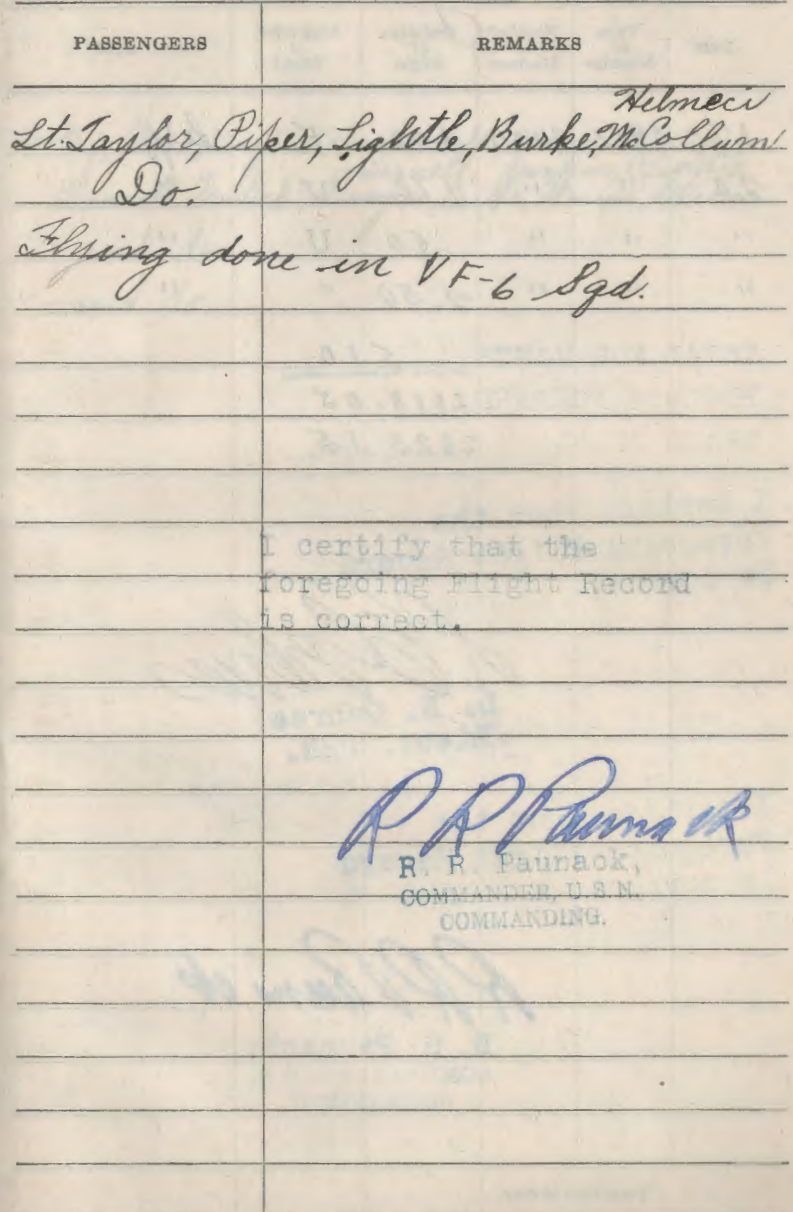 PASSENGERS REMARKS
Helmeci
Lt. Taylor, Piper, Lightle, Burke, McCollum
Do.
Flying done in VF-6 Sqd.
I certify that the
foregoing Flight Record
is correct.
R R Paunack
R. R. Paunack,
COMMANDER, U.S.N.
COMMANDING.